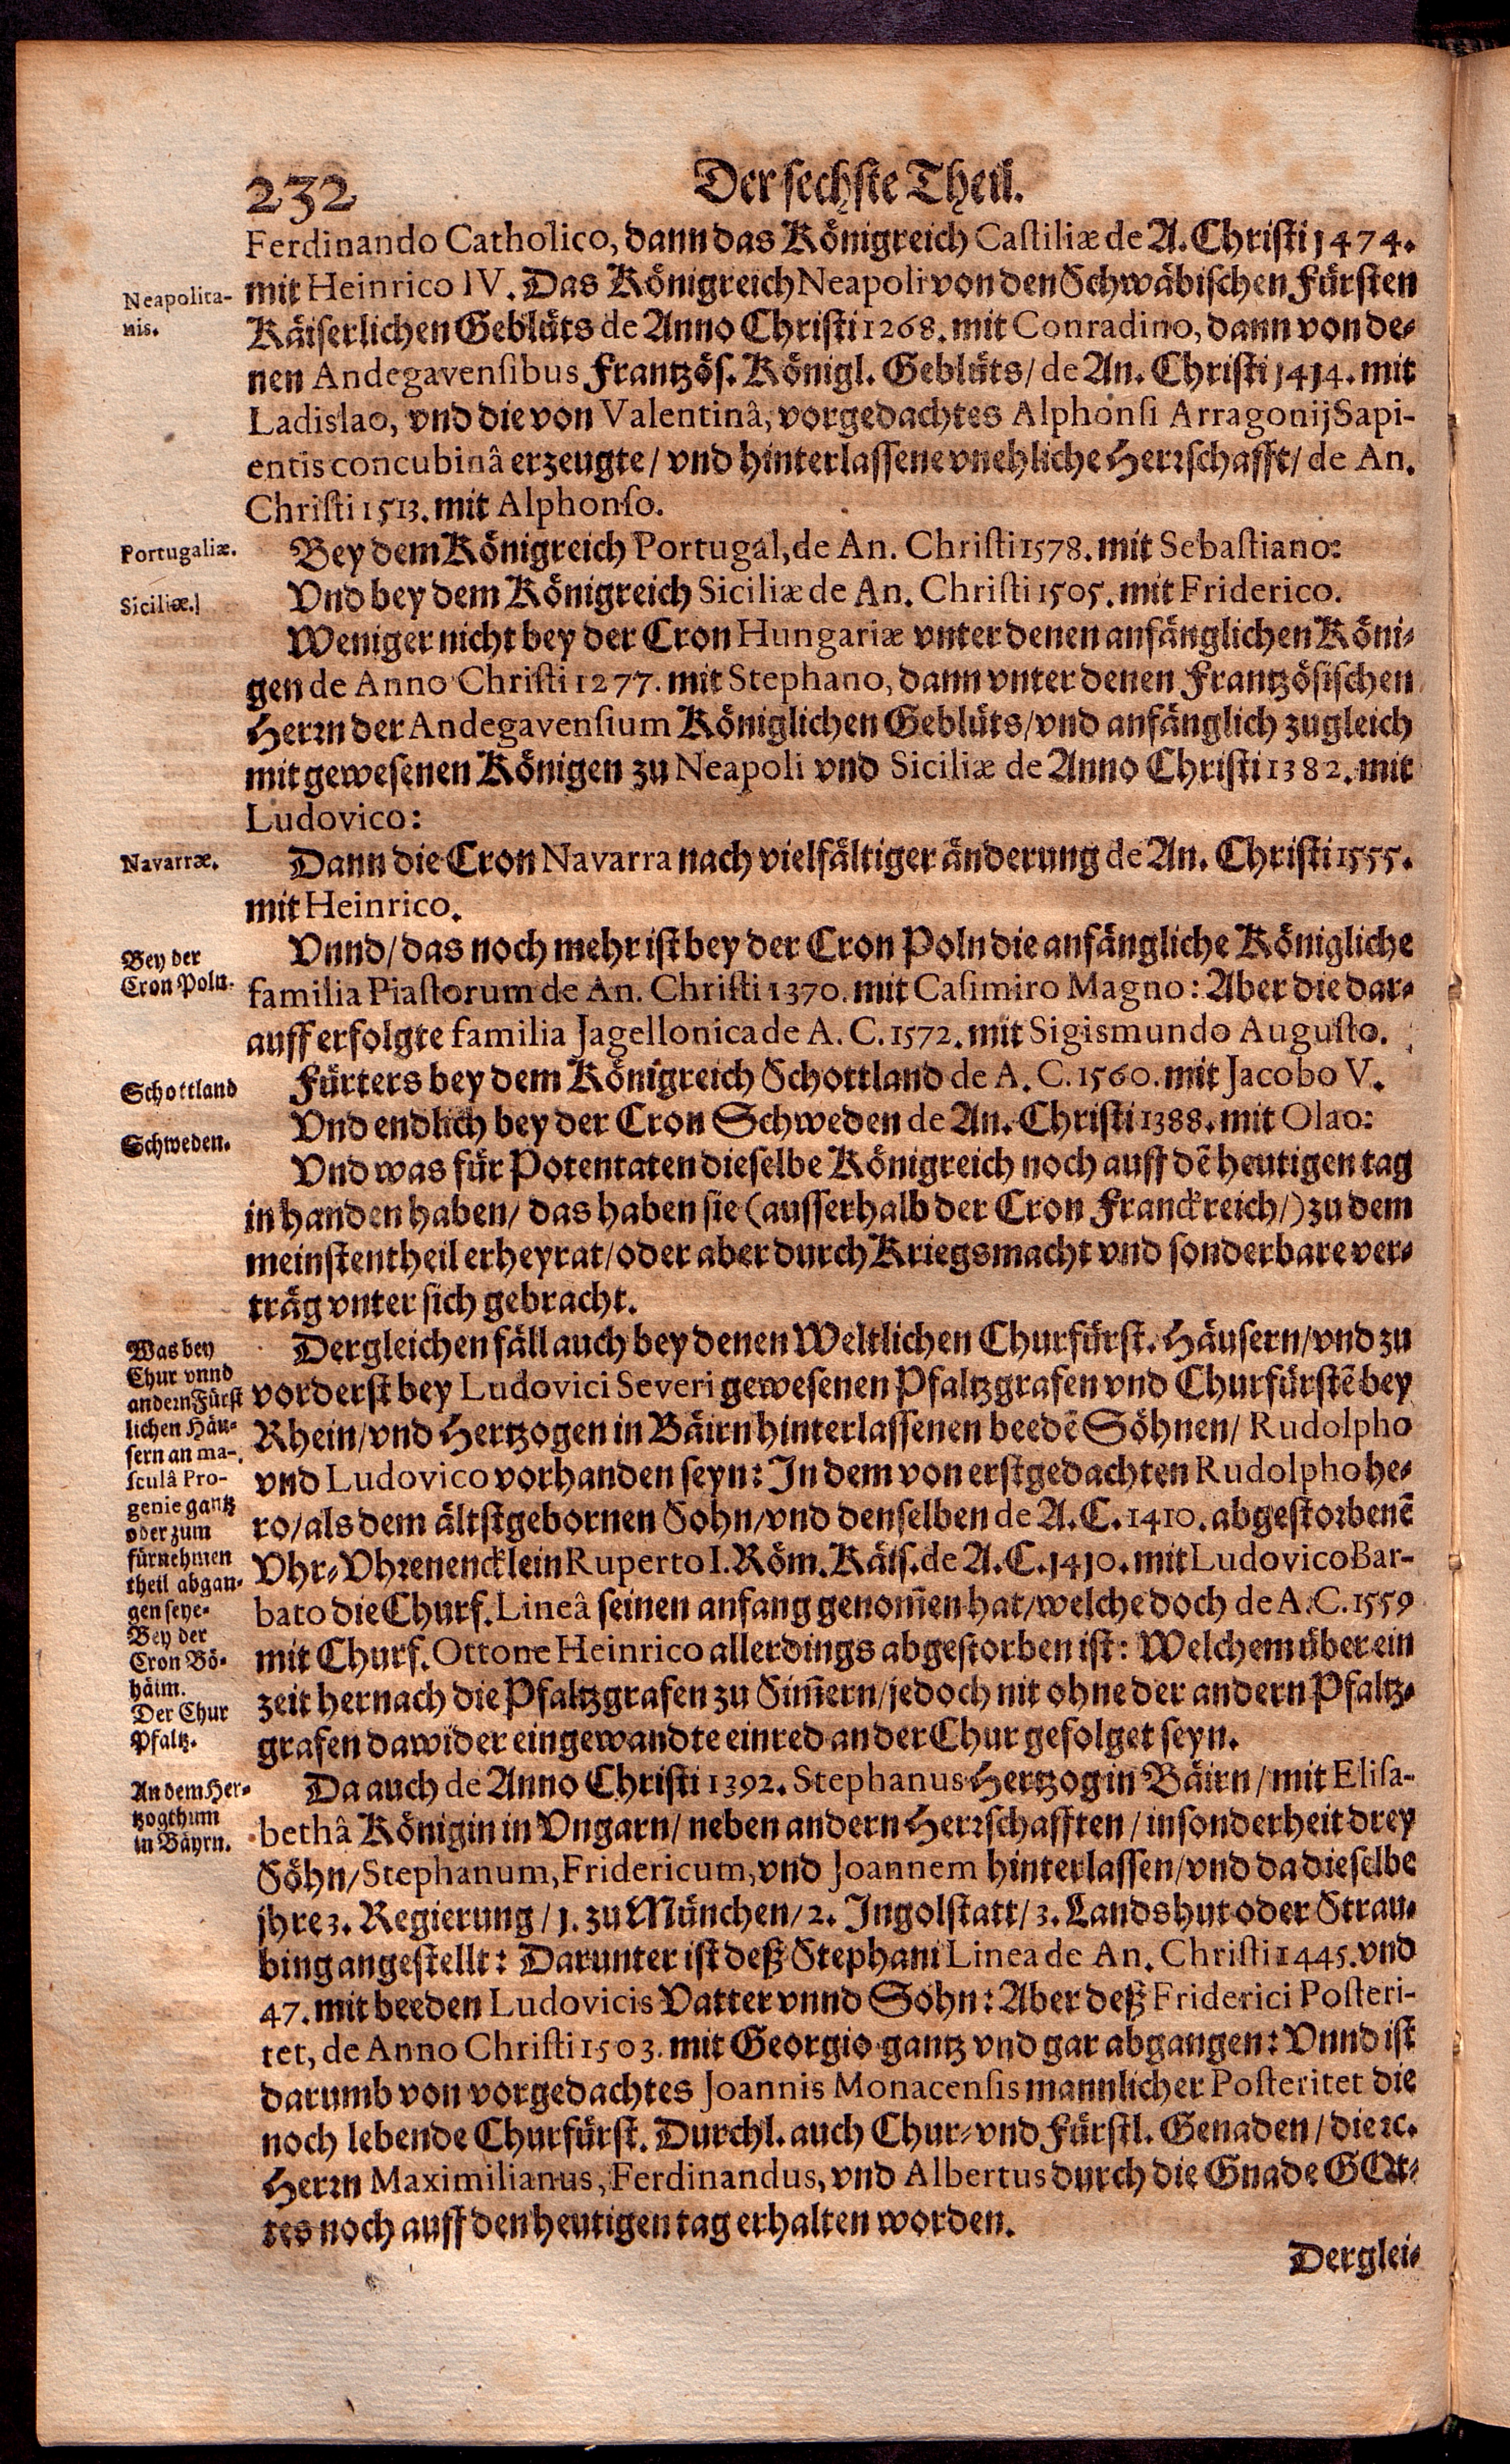 232
Der sechste Theil.
Ferdinando Catholico, dann das Königreich Castiliæ de A. Christi 1474.
Neapolita-
nis.
mit Heinrico IV. Das Königreich Neapoli von den Schwäbischen Fürsten
Käiserlichen Geblüts de Anno Christi 1268. mit Conradino, dann von de-
nen Andegavensibus Frantzös. Königl. Geblüts/ de An. Christi 1414. mit
Ladislao, vnd die von Valentinâ, vorgedachtes Alphonsi Arragonij Sapi-
entis concubinâ erzeugte/ vnd hinterlassene vnehliche Herrschafft/ de An.
Christi 1513. mit Alphonso.
Portugaliæ.
Bey dem Königreich Portugal, de An. Christi 1578. mit Sebastiano:
Siciliæ.
Vnd bey dem Königreich Siciliæ de An. Christi 1505. mit Friderico.
Weniger nicht bey der Cron Hungariæ vnter denen anfänglichen Köni-
gen de Anno Christi 1277. mit Stephano, dann vnter denen Frantzösischen
Herrn der Andegavensium Königlichen Geblüts/ vnd anfänglich zugleich
mit gewesenen Königen zu Neapoli vnd Siciliæ de Anno Christi 1382. mit
Ludovico:
Navarræ.
Dann die Cron Navarra nach vielfältiger änderung de An. Christi 1555.
mit Heinrico.
Bey der
Cron Poln.
Vnnd/ das noch mehr ist bey der Cron Poln die anfängliche Königliche
familia Piastorum de An. Christi 1370. mit Casimiro Magno: Aber die dar-
auff erfolgte familia Jagellonica de A. C. 1572. mit Sigismundo Augusto.
Schottland
Fürters bey dem Königreich Schottland de A. C. 1560. mit Jacobo V.
Schweden.
Vnd endlich bey der Cron Schweden de An. Christi 1388. mit Olao:
Vnd was für Potentaten dieselbe Königreich noch auff dẽ heutigen tag
in handen haben/ das haben sie (ausserhalb der Cron Franckreich/) zu dem
meinstentheil erheyrat/ oder aber durch Kriegsmacht vnd sonderbare ver-
träg vnter sich gebracht.
Was bey
Chur vnnd
andern Fürst
lichen Häu-
sern an ma-
sculâ Pro-
genie gantz
oder zum
fürnehmen
theil abgan-
gen seye-
Bey der
Cron Bö-
häim.
Der Chur
Pfaltz.
Dergleichen fäll auch bey denen Weltlichen Churfürst. Häusern/ vnd zu
vorderst bey Ludovici Severi gewesenen Pfaltzgrafen vnd Churfürstẽ bey
Rhein/ vnd Hertzogen in Bäirn hinterlassenen beedẽ Söhnen/ Rudolpho
vnd Ludovico vorhanden seyn: In dem von erstgedachten Rudolpho he-
ro/ als dem ältstgebornen Sohn/ vnd denselben de A. C. 1410. abgestorbenẽ
Vhr-Vhrenencklein Ruperto I. Röm. Käis. de A. C. 1410. mit Ludovico Bar-
bato die Churf. Lineâ seinen anfang genom̃en hat/ welche doch de A. C. 1559
mit Churf. Ottone Heinrico allerdings abgestorben ist: Welchem über ein
zeit hernach die Pfaltzgrafen zu Sim̃ern/ jedoch nit ohne der andern Pfaltz-
grafen dawider eingewandte einred an der Chur gefolget seyn.
An dem Her-
tzogthum
in Bäyrn.
Da auch de Anno Christi 1392. Stephanus Hertzog in Bäirn/ mit Elisa-
bethâ Königin in Vngarn/ neben andern Herrschafften/ insonderheit drey
Söhn/ Stephanum, Fridericum, vnd Joannem hinterlassen/ vnd da dieselbe
jhre 3. Regierung/ 1. zu München/ 2. Ingolstatt/ 3. Landshut oder Strau-
bing angestellt: Darunter ist deß Stephani Linea de An. Christi 1445. vnd
47. mit beeden Ludovicis Vatter vnnd Sohn: Aber deß Friderici Posteri-
tet, de Anno Christi 1503. mit Georgio gantz vnd gar abgangen: Vnnd ist
darumb von vorgedachtes Joannis Monacensis mannlicher Posteritet die
noch lebende Churfürst. Durchl. auch Chur- vnd Fürstl. Genaden/ die ꝛc.
Herrn Maximilianus, Ferdinandus, vnd Albertus durch die Gnade GOt-
tes noch auff den heutigen tag erhalten worden.
Derglei-